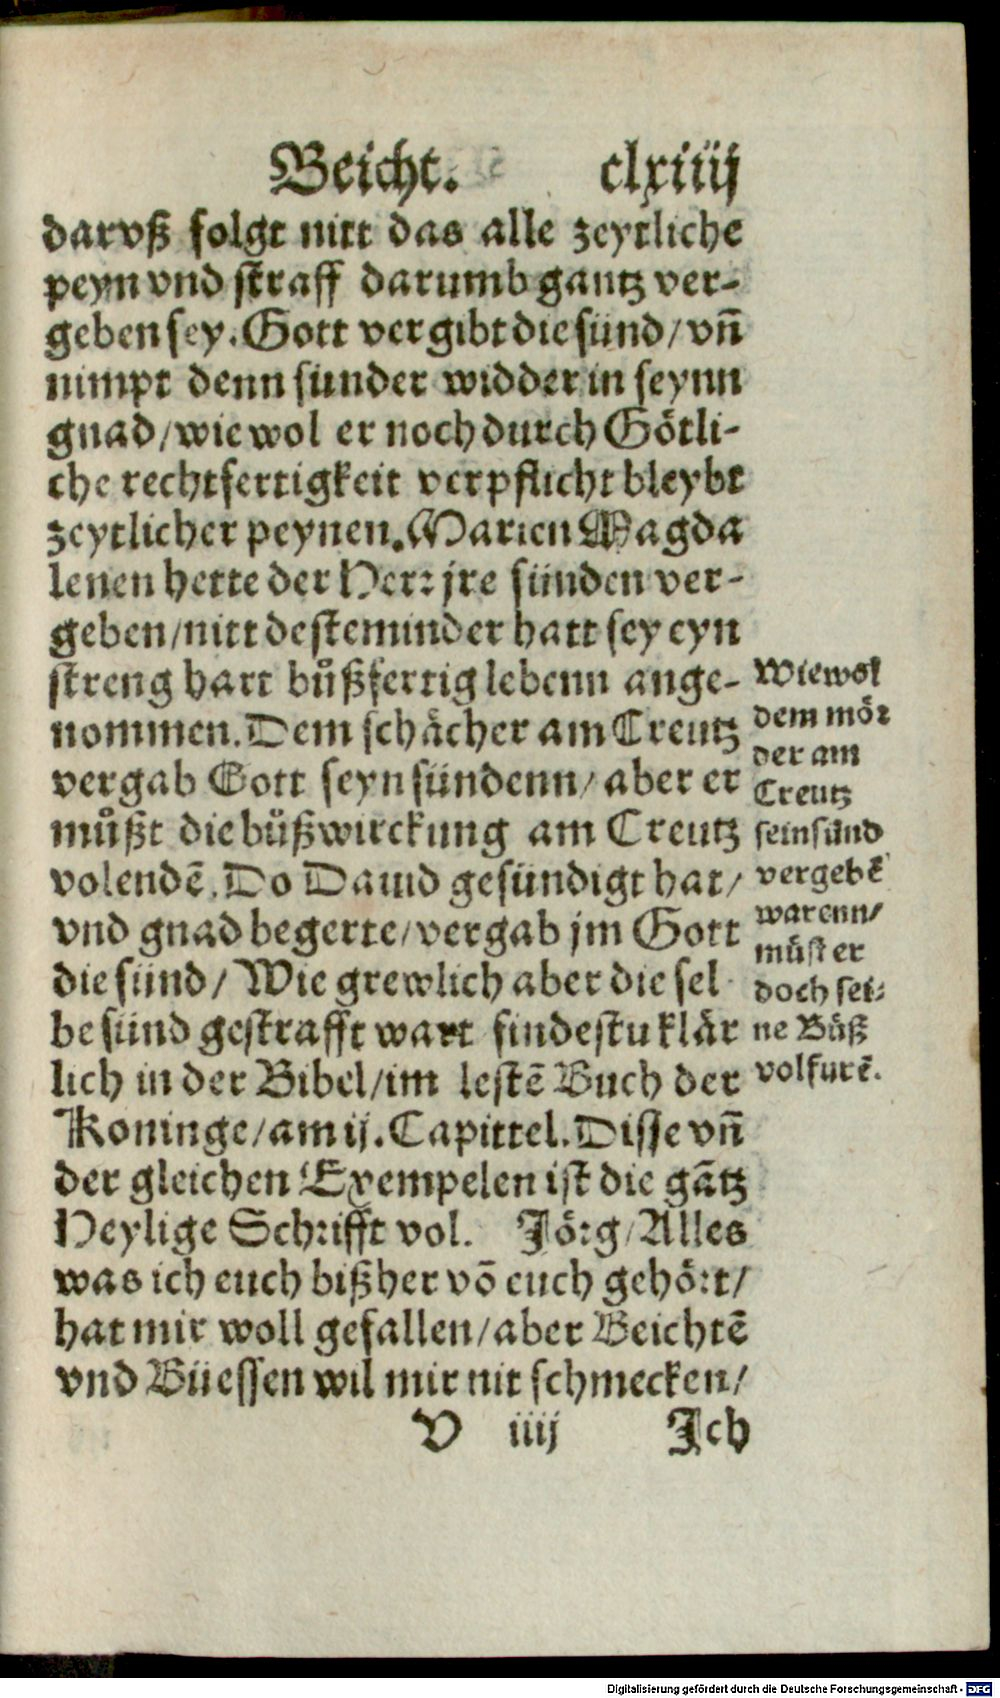 Beicht. clxiiij
darvß folgt nitt das alle zeytliche
peyn vnd straff darumb gantz ver-
geben sey. Gott vergibt die sünd/ vñ
nimpt denn sunder widder in seynn
gnad/ wie wol er noch durch Götli-
che rechtfertigkeit verpflicht bleybt
zeytlicher peynen. Marien Magda
lenen hette der Herr jre sünden ver-
geben/ nitt desteminder hatt sey eyn
streng hart bůßfertig lebenn ange-
nommen. Dem schächer am Creutz
vergab Gott seyn sündenn/ aber er
můßt die bůßwirckung am Creutz
volendē. Do Dauid gesündigt hat/
vnd gnad begerte/ vergab jm Gott
die sünd/ Wie grewlich aber die sel
be sünd gestrafft wart findestu klär
lich in der Bibel/ im lestē Buch der
Koninge/ am ij. Capittel. Disse vñ
der gleichen Exempelen ist die gātz
Heylige Schrifft vol. Jörg/ Alles
was ich euch bißher vō euch gehört/
hat mir woll gefallen/ aber Beichtē
vnd Büessen wil mir nit schmecken/
V iiij Jch
Wiewol
dem mör
der am
Creutz
sein sünd
vergebē
warenn/
můst er
doch sei-
ne Bůß
volfurē.
Digitalisierung gefördert durch die Deutsche Forschungsgemeinschaft - DFG